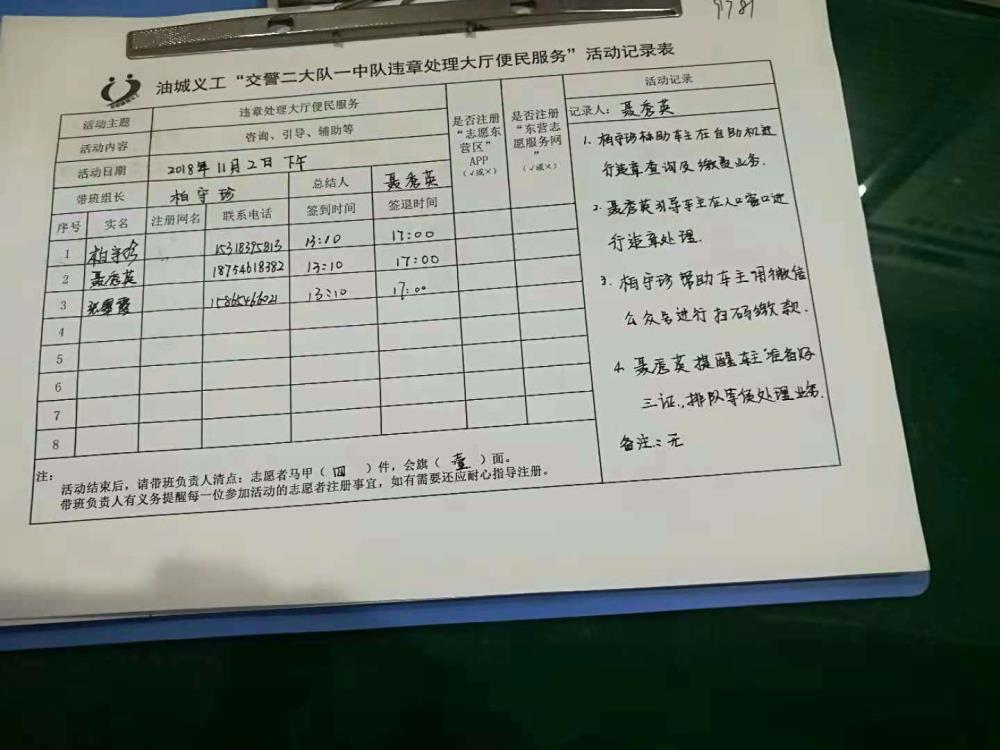 9781
油城义工“交警二大队一中队违章处理大厅便民服务”活动记录表
活动主题 违章处理大厅便民服务
活动内容 咨询、引导、辅助等
活动日期 2018年11月2日 下午
带班组长 柏守珍 总结人 聂秀英
序号 实名 注册网名 联系电话 签到时间 签退时间
是否注册
“志愿东
营区”
APP
(√或×)
是否注册
“东营志
愿服务网
”
(√或×)
1 柏守珍 15318395813 13:10 17:00
2 聂秀英 18754618382 13:10 17:00
3 15865466021 13:10 17:00
4
5
6
7
8
注:
活动结束后，请带班负责人清点：志愿者马甲（四）件，会旗（壹）面。
带班负责人有义务提醒每一位参加活动的志愿者注册事宜，如有需要还应耐心指导注册。
活动记录
记录人：聂秀英
1. 柏守珍协助车主在自助机进
行违章查询及缴费业务.
2. 聂秀英引导车主在人口窗口进
行违章处理.
3. 柏守珍帮助车主用微信
公众号进行扫码缴款.
4. 聂秀英提醒车主准备好
三证,排队等侯处理业务.
备注:无